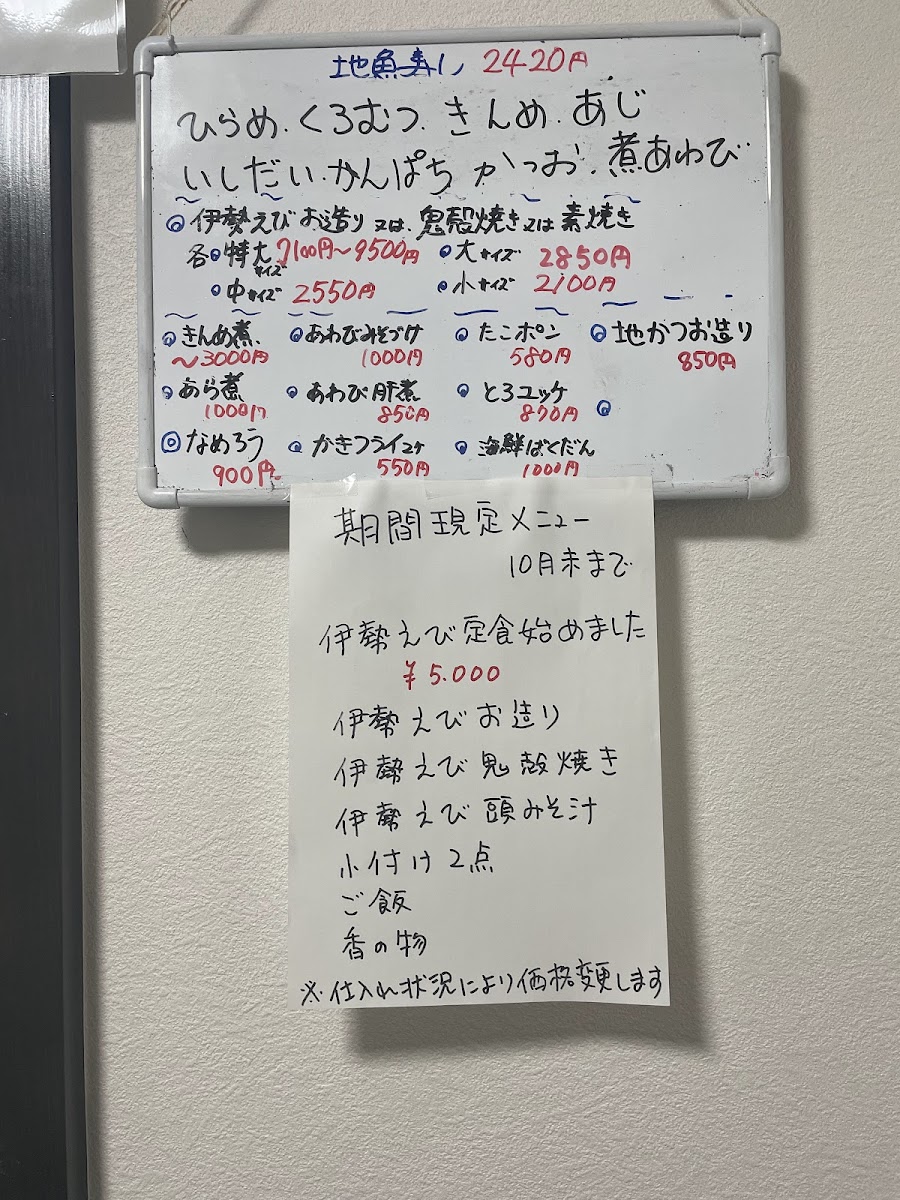 地魚寿し 2420円
ひらめ.くろむつ.きんめ.あじ
いしだい.かんぱち かつお.煮あわび
◎伊勢えびお造り又は.鬼殻焼き又は素焼き
各●特大サイズ7100円〜9500円 ●大サイズ 2850円
●中サイズ 2550円 ●小サイズ 2100円
●きんめ煮. ●あわびみそづけ ●たこポン ◎地かつお造り
〜3000円 1000円 580円 850円
●あら煮 ●あわび肝煮 ●とろユッケ ◎
1000円 850円 870円
◎なめろう ●かきフライ2ケ ●海鮮ばくだん
900円 550円 1000円
期間現定メニュー
10月末まで
伊勢えび定食始めました
¥5.000
伊勢えびお造り
伊勢えび鬼殻焼き
伊勢えび頭みそ汁
小付け2点
ご飯
香の物
※.仕入れ状況により価格変更します